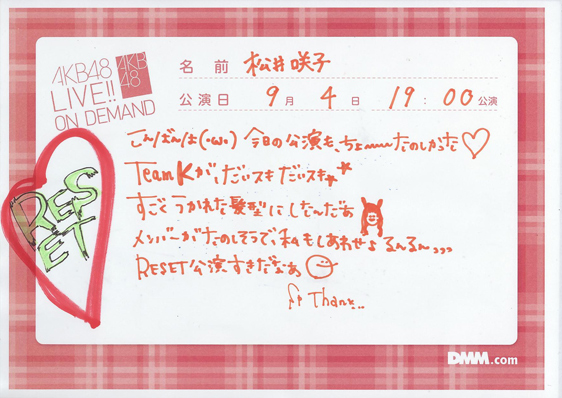 AKB48
LIVE!!
ON DEMAND
AKB
48
名前 松井咲子
公演日 9月 4日 19:00公演
RES
ET
こんばんは(・ω・) 今日の公演も、ちょーーたのしかった♡
Team Kが、だいスキ だいスキ
すごくうかれた髪型にしたんだぁ
メンバーがたのしそうで、私もしあわせょ るんるん
RESET公演すきだなぁ
Thank..
DMM.com